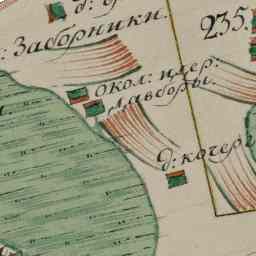 : Заборники.
235.
окол: идер:
Лавборы.
д: кочерг